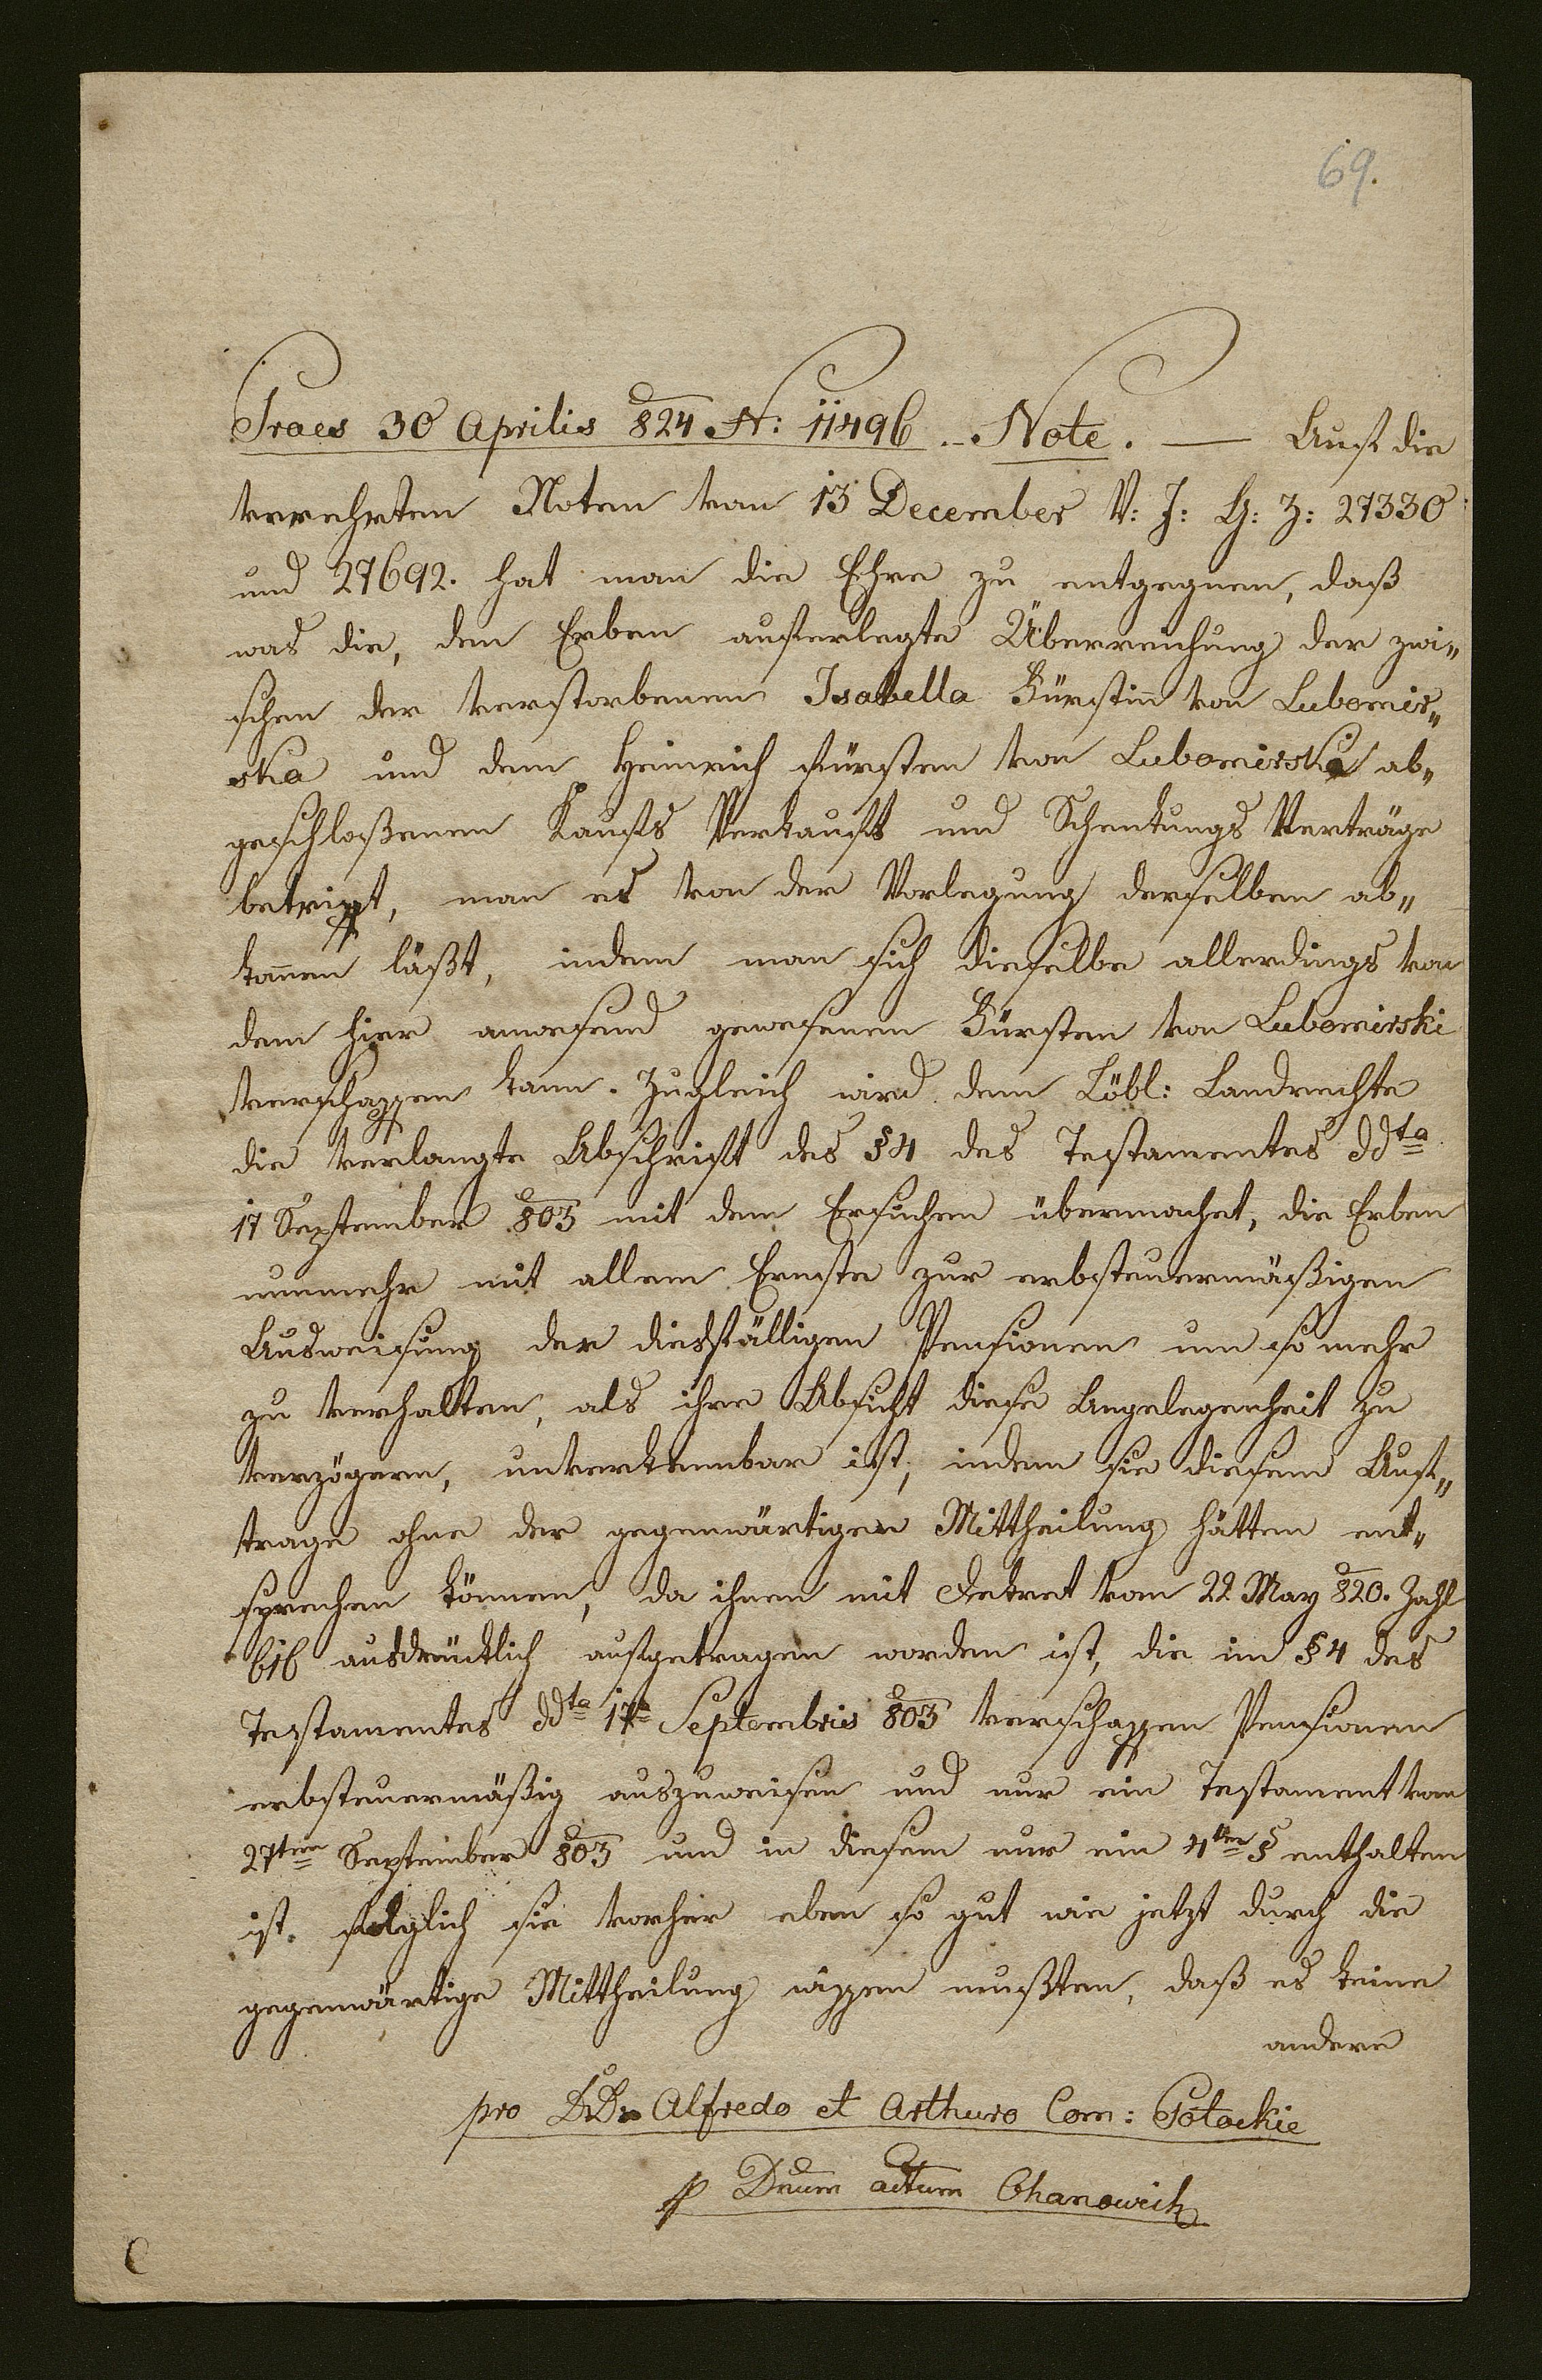 69.
Praes 30 Aprilis 824 N: 11496 .. Note. — Auf die
verehrten Noten vom 13 December V: J: G: Z: 27330
und 27692. hat man die Ehre zu entgegnen, daß
was die, den Erben auferlegte Überreichung der zwi„
schen der verstorbenen Isabella Fürstin von Lubomir„
ska und dem Heinrich Fürsten von Lubomirski ab„
geschloßenen Kaufs Verkaufs und Schenkungs Verträge
betrifft, man es von der Vorlegung derselben ab„
kommen läßt, indem man sich dieselbe allerdings von
dem hier anwesend gewesenen Fürsten von Lubomirski
verschaffen kann. Zugleich wird dem Löbl: Landrechte
die verlangte Abschrift des §4 des Testamentes ddta
17 September 803 mit dem Ersuchen übermachet, die Erben
nunmehr mit allem Ernste zur erbsteuermäßigen
Ausweisung der diesfälligen Pensionen um so mehr
zu verhalten, als ihre Absicht diese Angelegenheit zu
verzögern, unverkennbar ist, indem sie diesem Auf„
trage ohne der gegenwärtigen Mittheilung hätten ent„
sprechen können, da ihnen mit Dekret vom 22 May 820. Zahl
616 ausdrücklich aufgetragen worden ist, die im §4 des
Testamentes ddta 17a Septembris 803 verschaffen Pensionen
erbsteuermäßig auszuweisen und nur ein Testament vom
27ten September 803 und in diesem nur ein 4ter § enthalten
ist. folglich sie vorher eben so gut wie jetzt durch die
gegenwärtige Mittheilung wissen mußten, daß es keine
andere
pro DD. Alfredo et Arthuro Com: Potockie
p Dnum actum Chanowich